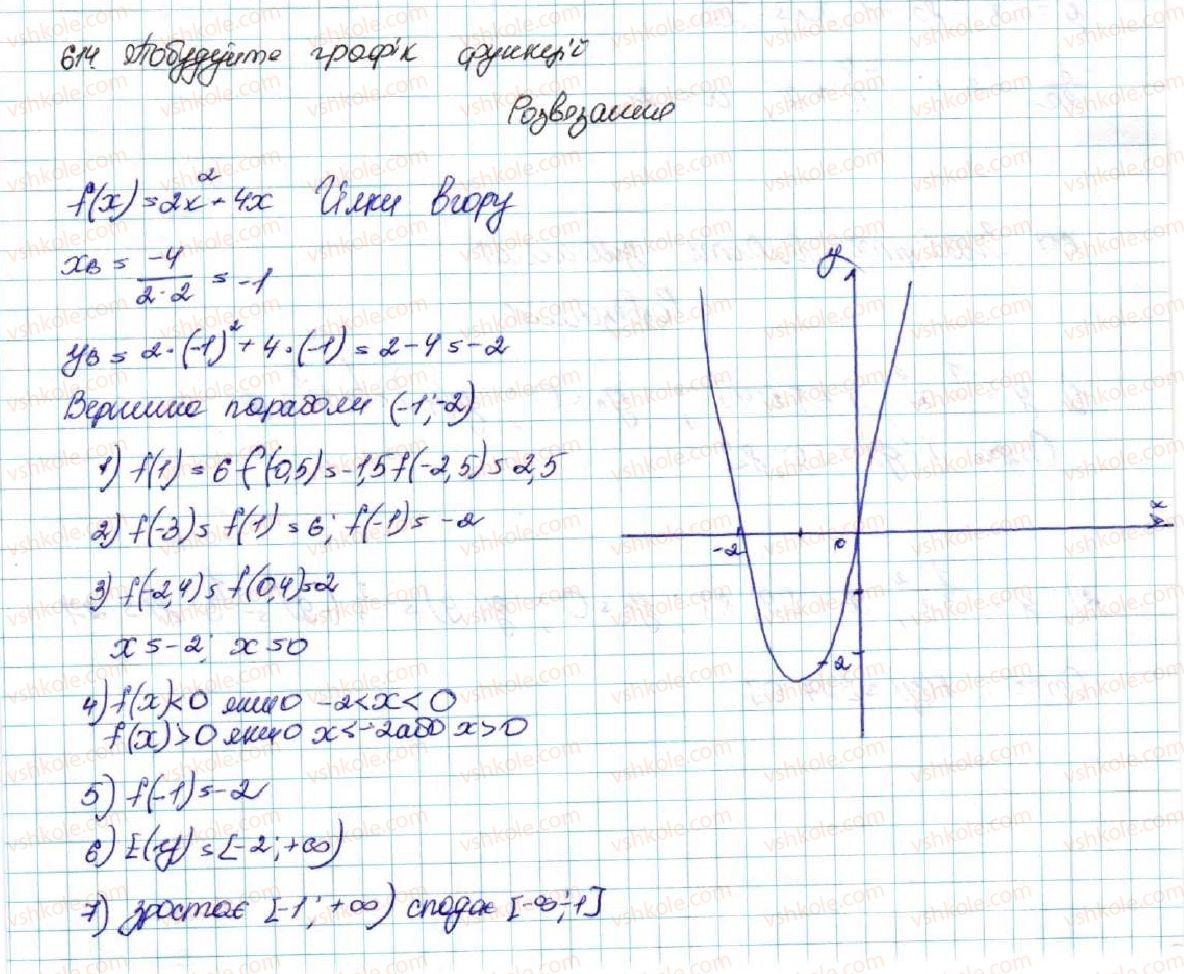 614. Побудуйте графік функції
Розвезание
f(x) = 2x² + 4x Гілки вгору
xв = -4/2·2 = -1
yв = 2·(-1)² + 4·(-1) = 2-4 = -2
Вершина параболи (-1;-2)
1) f(1) = 6 f(-0,5) = -1,5 f(-2,5) = 2,5
2) f(-3) = f(1) = 6; f(-1) = -2
3) f(-2,4) = f(0,4) = 2
x = -2; x = 0
4) f(x)<0 якщо -2<x<0
f(x)>0 якщо x<-2 або x>0
5) f(-1) = -2
6) E(y) = [-2; +∞)
7) зростає [-1; +∞) спадає [-∞;-1]
y
x
-2
0
-2
vshkole.com